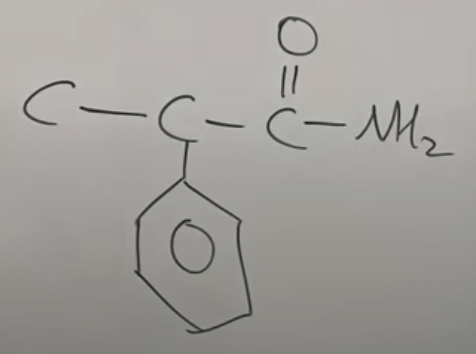 O
C – C – C – NH2